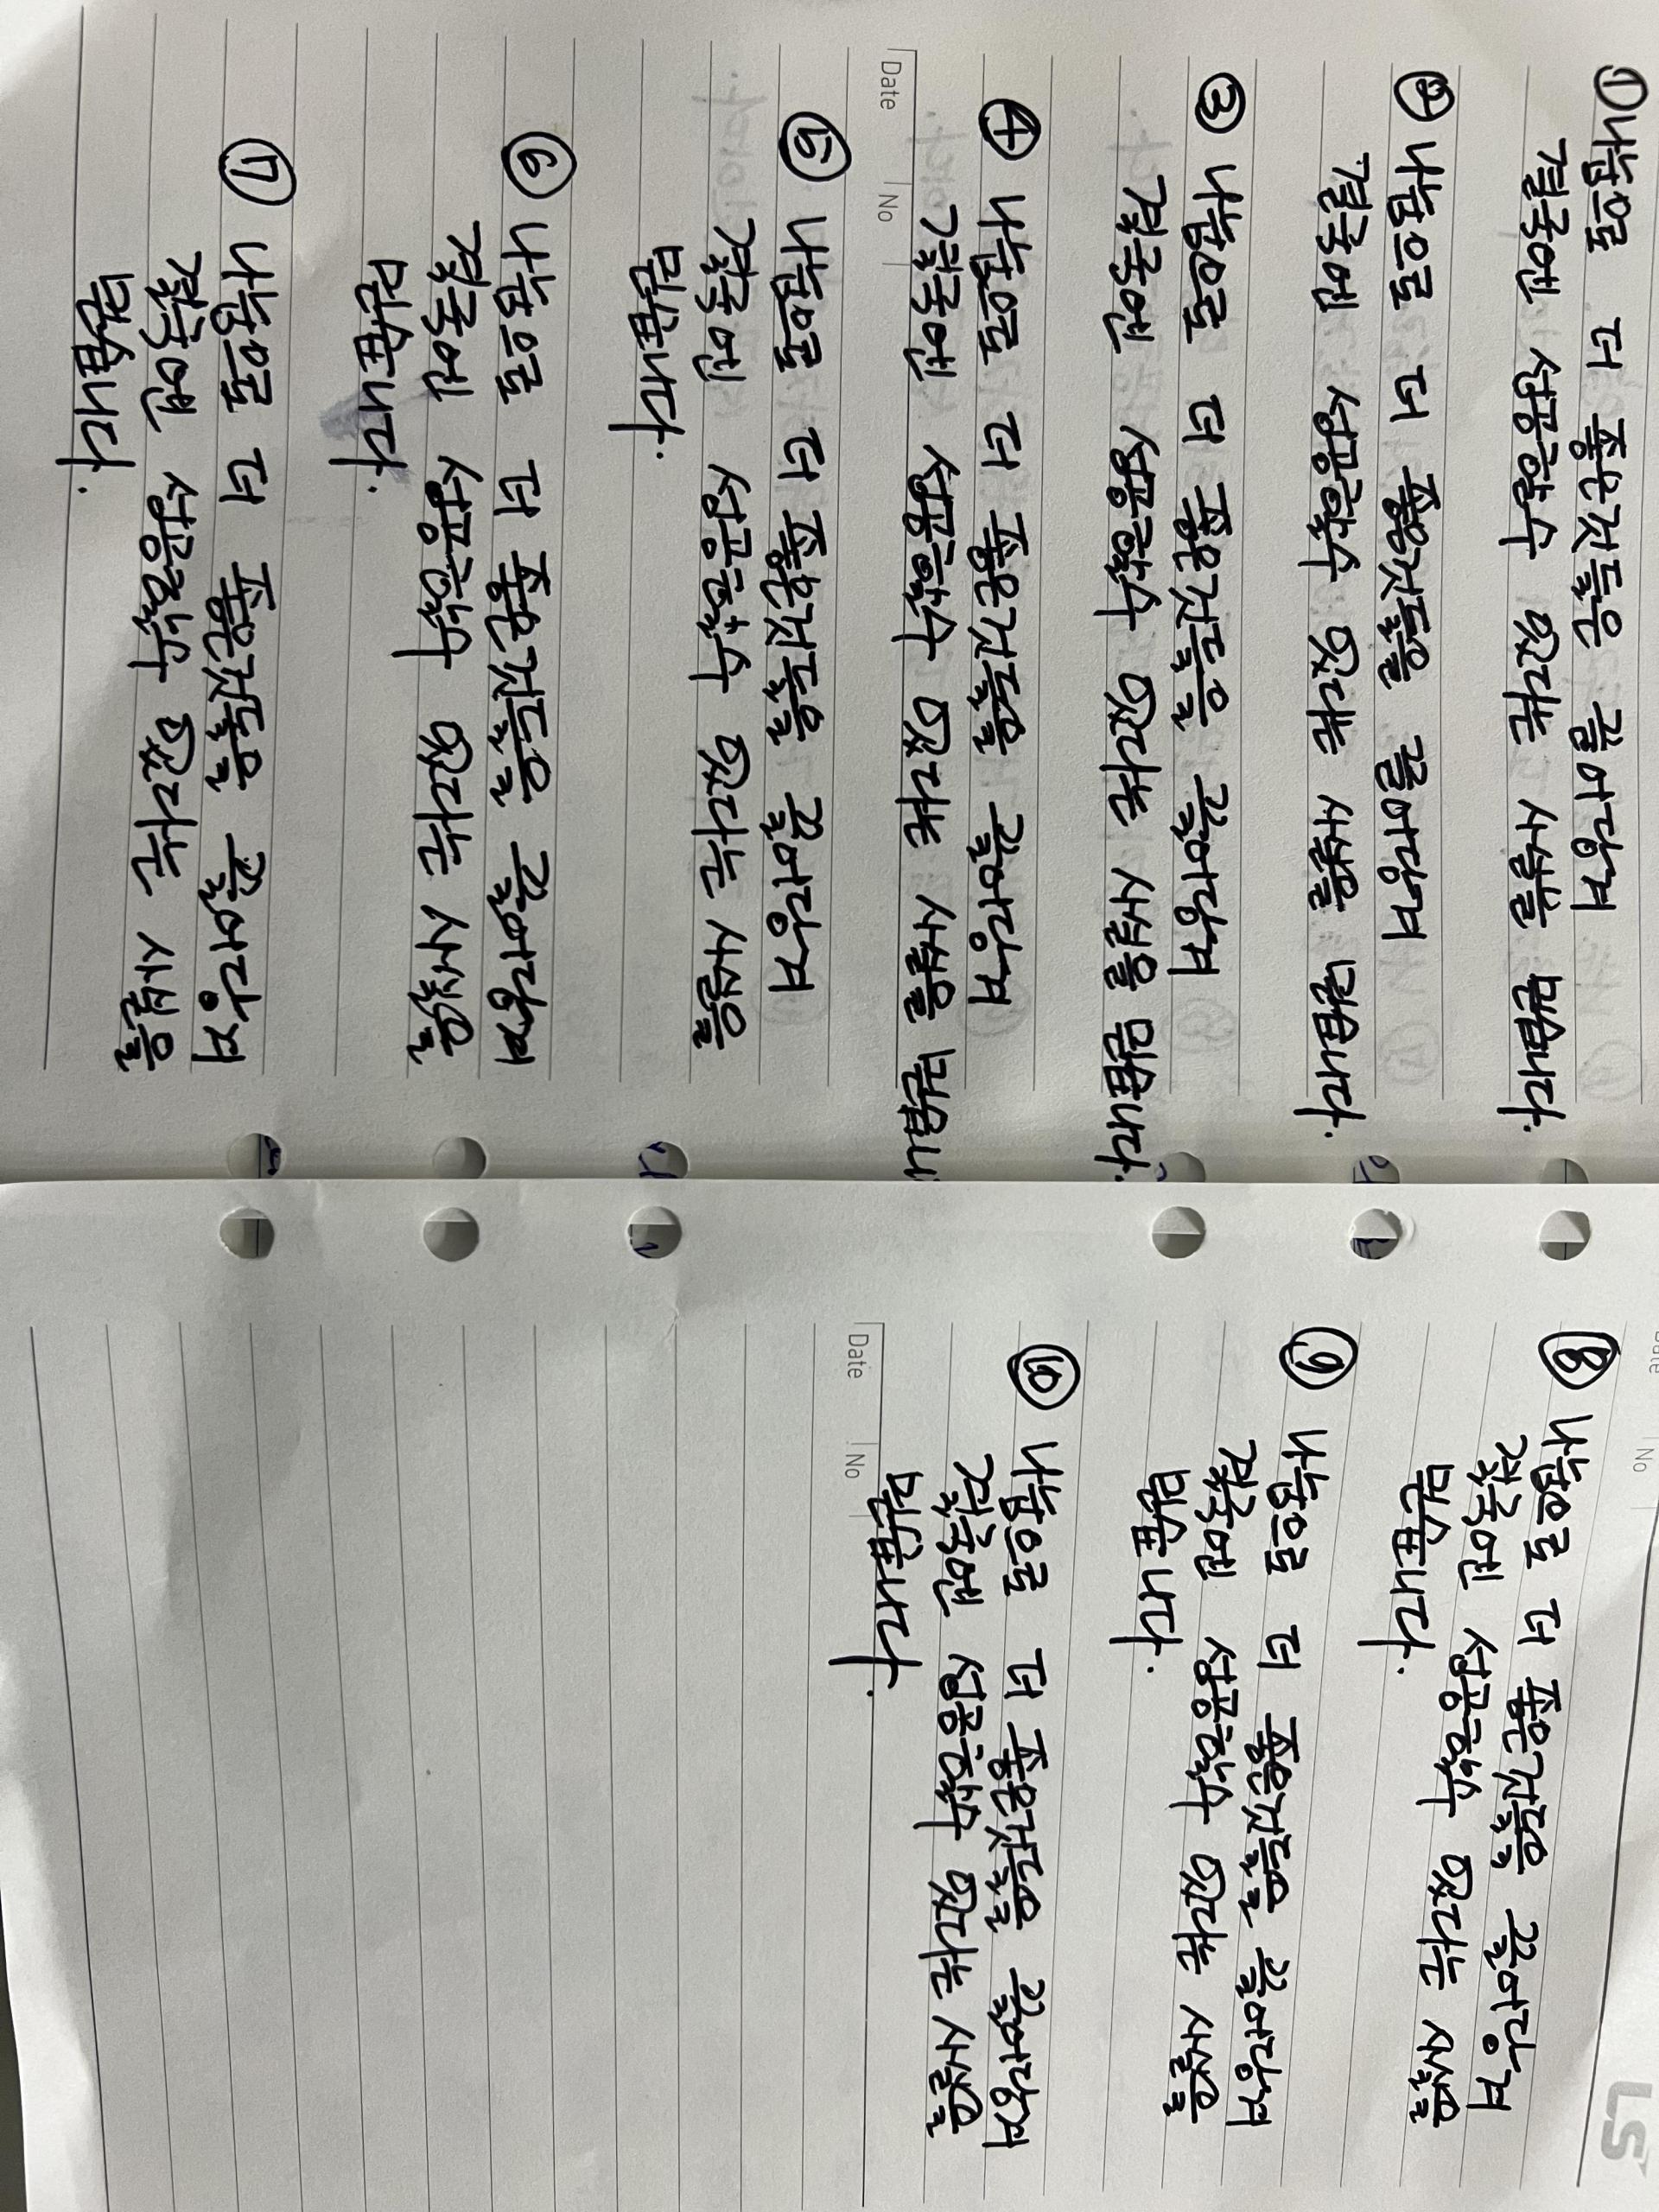 ① 나눔으로 더 좋은것들은 끌어당겨
결국엔 성공할수 있다는 사실을 믿습니다.
② 나눔으로 더 좋은것들을 끌어당겨
결국엔 성공할수 있다는 사실을 믿습니다.
③ 나눔으로 더 좋은것들을 끌어당겨
결국엔 성공할수 있다는 사실을 믿습니다.
④ 나눔으로 더 좋은것들을 끌어당겨
결국엔 성공할수 있다는 사실을 믿습니다
Date No
⑤ 나눔으로 더 좋은것들을 끌어당겨
결국엔 성공할수 있다는 사실을
믿습니다.
⑥ 나눔으로 더 좋은것들을 끌어당겨
결국엔 성공할수 있다는 사실을
믿습니다.
⑦ 나눔으로 더 좋은것들을 끌어당겨
결국엔 성공할수 있다는 사실을
믿습니다.
Date No
⑧ 나눔으로 더 좋은것들을 끌어당겨
결국엔 성공할수 있다는 사실을
믿습니다.
⑨ 나눔으로 더 좋은것들을 끌어당겨
결국엔 성공할수 있다는 사실을
믿습니다.
⑩ 나눔으로 더 좋은것들을 끌어당겨
결국엔 성공할수 있다는 사실을
믿습니다.
Date No
LS